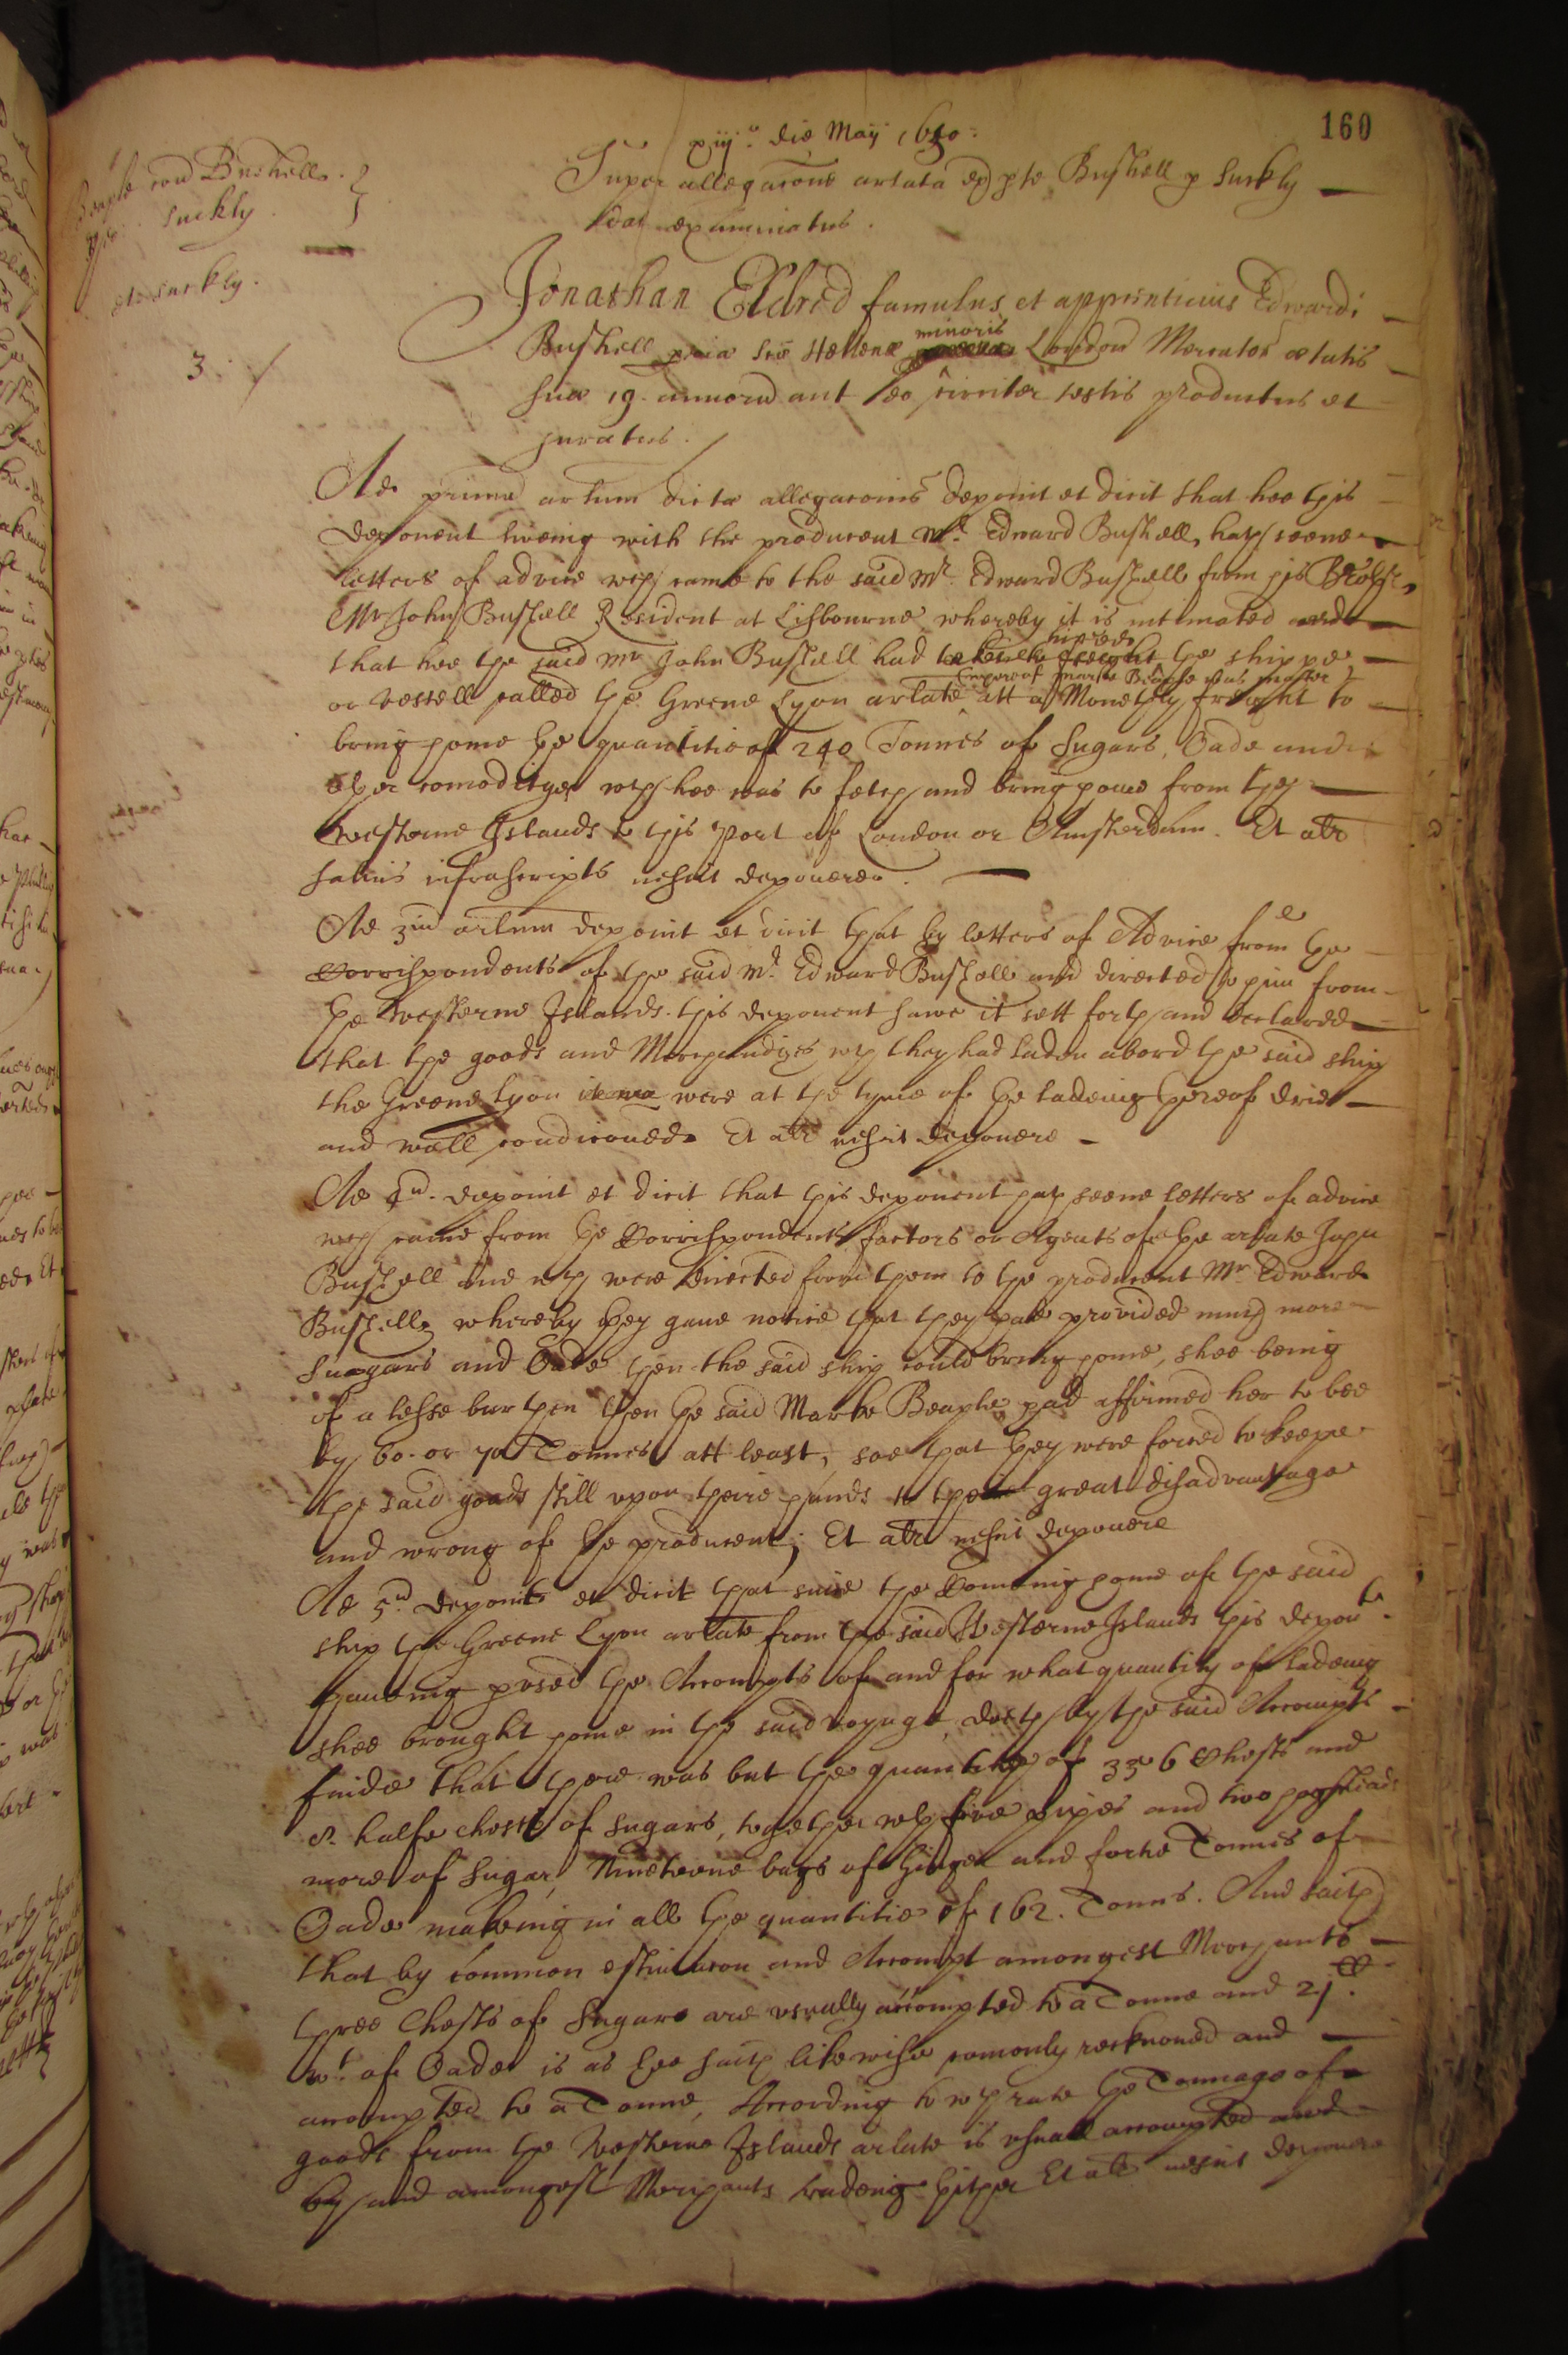 160
xiij.o die Maij 1650:
Super allegacone arlata ex pte Bushell p Suckly
dat examinatus.
Beaple con Bushell.
Suckly.
Suckly.
3. /
Jonathan Eldred famulus et apprenticius Edwardi
Bushell pocia Scæ Hellenæ minoris London Mercator ætatis
suæ 19. annorum aut eo circiter testis productus et
juratus.
Ad primum arlum dictæ allegaconis deponit et dicit that hee this
deponent liveing with the producent Mr. Edward Bushell, hath seene
letters of advice wch came to the said Mr. Edward Bushell from his
Mr John Bushell Resident at Lishbourne whereby it is intimated
that hee the said Mr John Bushell had hired the shippe
or vessell called the Greene Lyon arlate whereof Marke Beaple was master att a Monethly freight to
bring home the quantitie of 240 Tonnes of Sugars, Oade and
other comodityes wch hee was to fetch and bring home from the
Westerne Islands to this Port of London or Amsterdam. Et alr
salvis infrascriptis nescit deponere.
Ad 3um arlum deponit et dicit that by letters of Advice from the
Corrispondents of the said Mr. Edward Bushell and directed to him from
the Westerne Islands this deponent sawe it sett forth and declared
that the goods and Merchandizes wch they had laden abord the said ship
the Greene Lyon were at the tyme of the ladeing thereof drie
and well condiconed. Et alr nescit deponere
Ad 4um. deponit et dicit that this deponent hath seene letters of advice
wch came from the Corrispondents factors or Agents of the arlate John
Bushell and wch were directed from them to the producent Mr Edward
Bushell, whereby they gave notice that they had provided much more
Suagars and Oade then the said ship could bring home, shee being
of a lesse burthen then the said Marke Beaple had affirmed her to bee
by 60. or 70 Tonnes att least, soe that they were forced to keepe
the said goods still upon theire hands to theire great disadvantage
and wrong of the producent; Et alr nescit deponere
Ad 5um deponit et dicit that since the Comming home of the said
ship the Greene Lyon arlate from the said Westerne Islands this deponte
haveing pvsed the Accompts of and for what quantity of ladeing
shee brought home in the said voyage, doeth by the said Accompts
finde that there was but the quantity of 336 Chests and
halfe chests of Sugars, together wth five pipes and two hogsheads
more of Sugar, Nineteene bags of Ginger and fortie Tonnes of
Oade makeing in all the quantitie of 162. Tonns. And saith
that by common estimacon and Accompt amongest Merchants
three Chests of Sugars are usually accompted to a Tonne and 21.C
wt. of Oade is as hee saith likewise comonly reckoned and
accompted to a Tonne, According to wch rate the Tonnage of
goods from the Westerne Islands arlate is usuall accompted
by and amongest Merchants tradeing thither Et alr nescit deponere